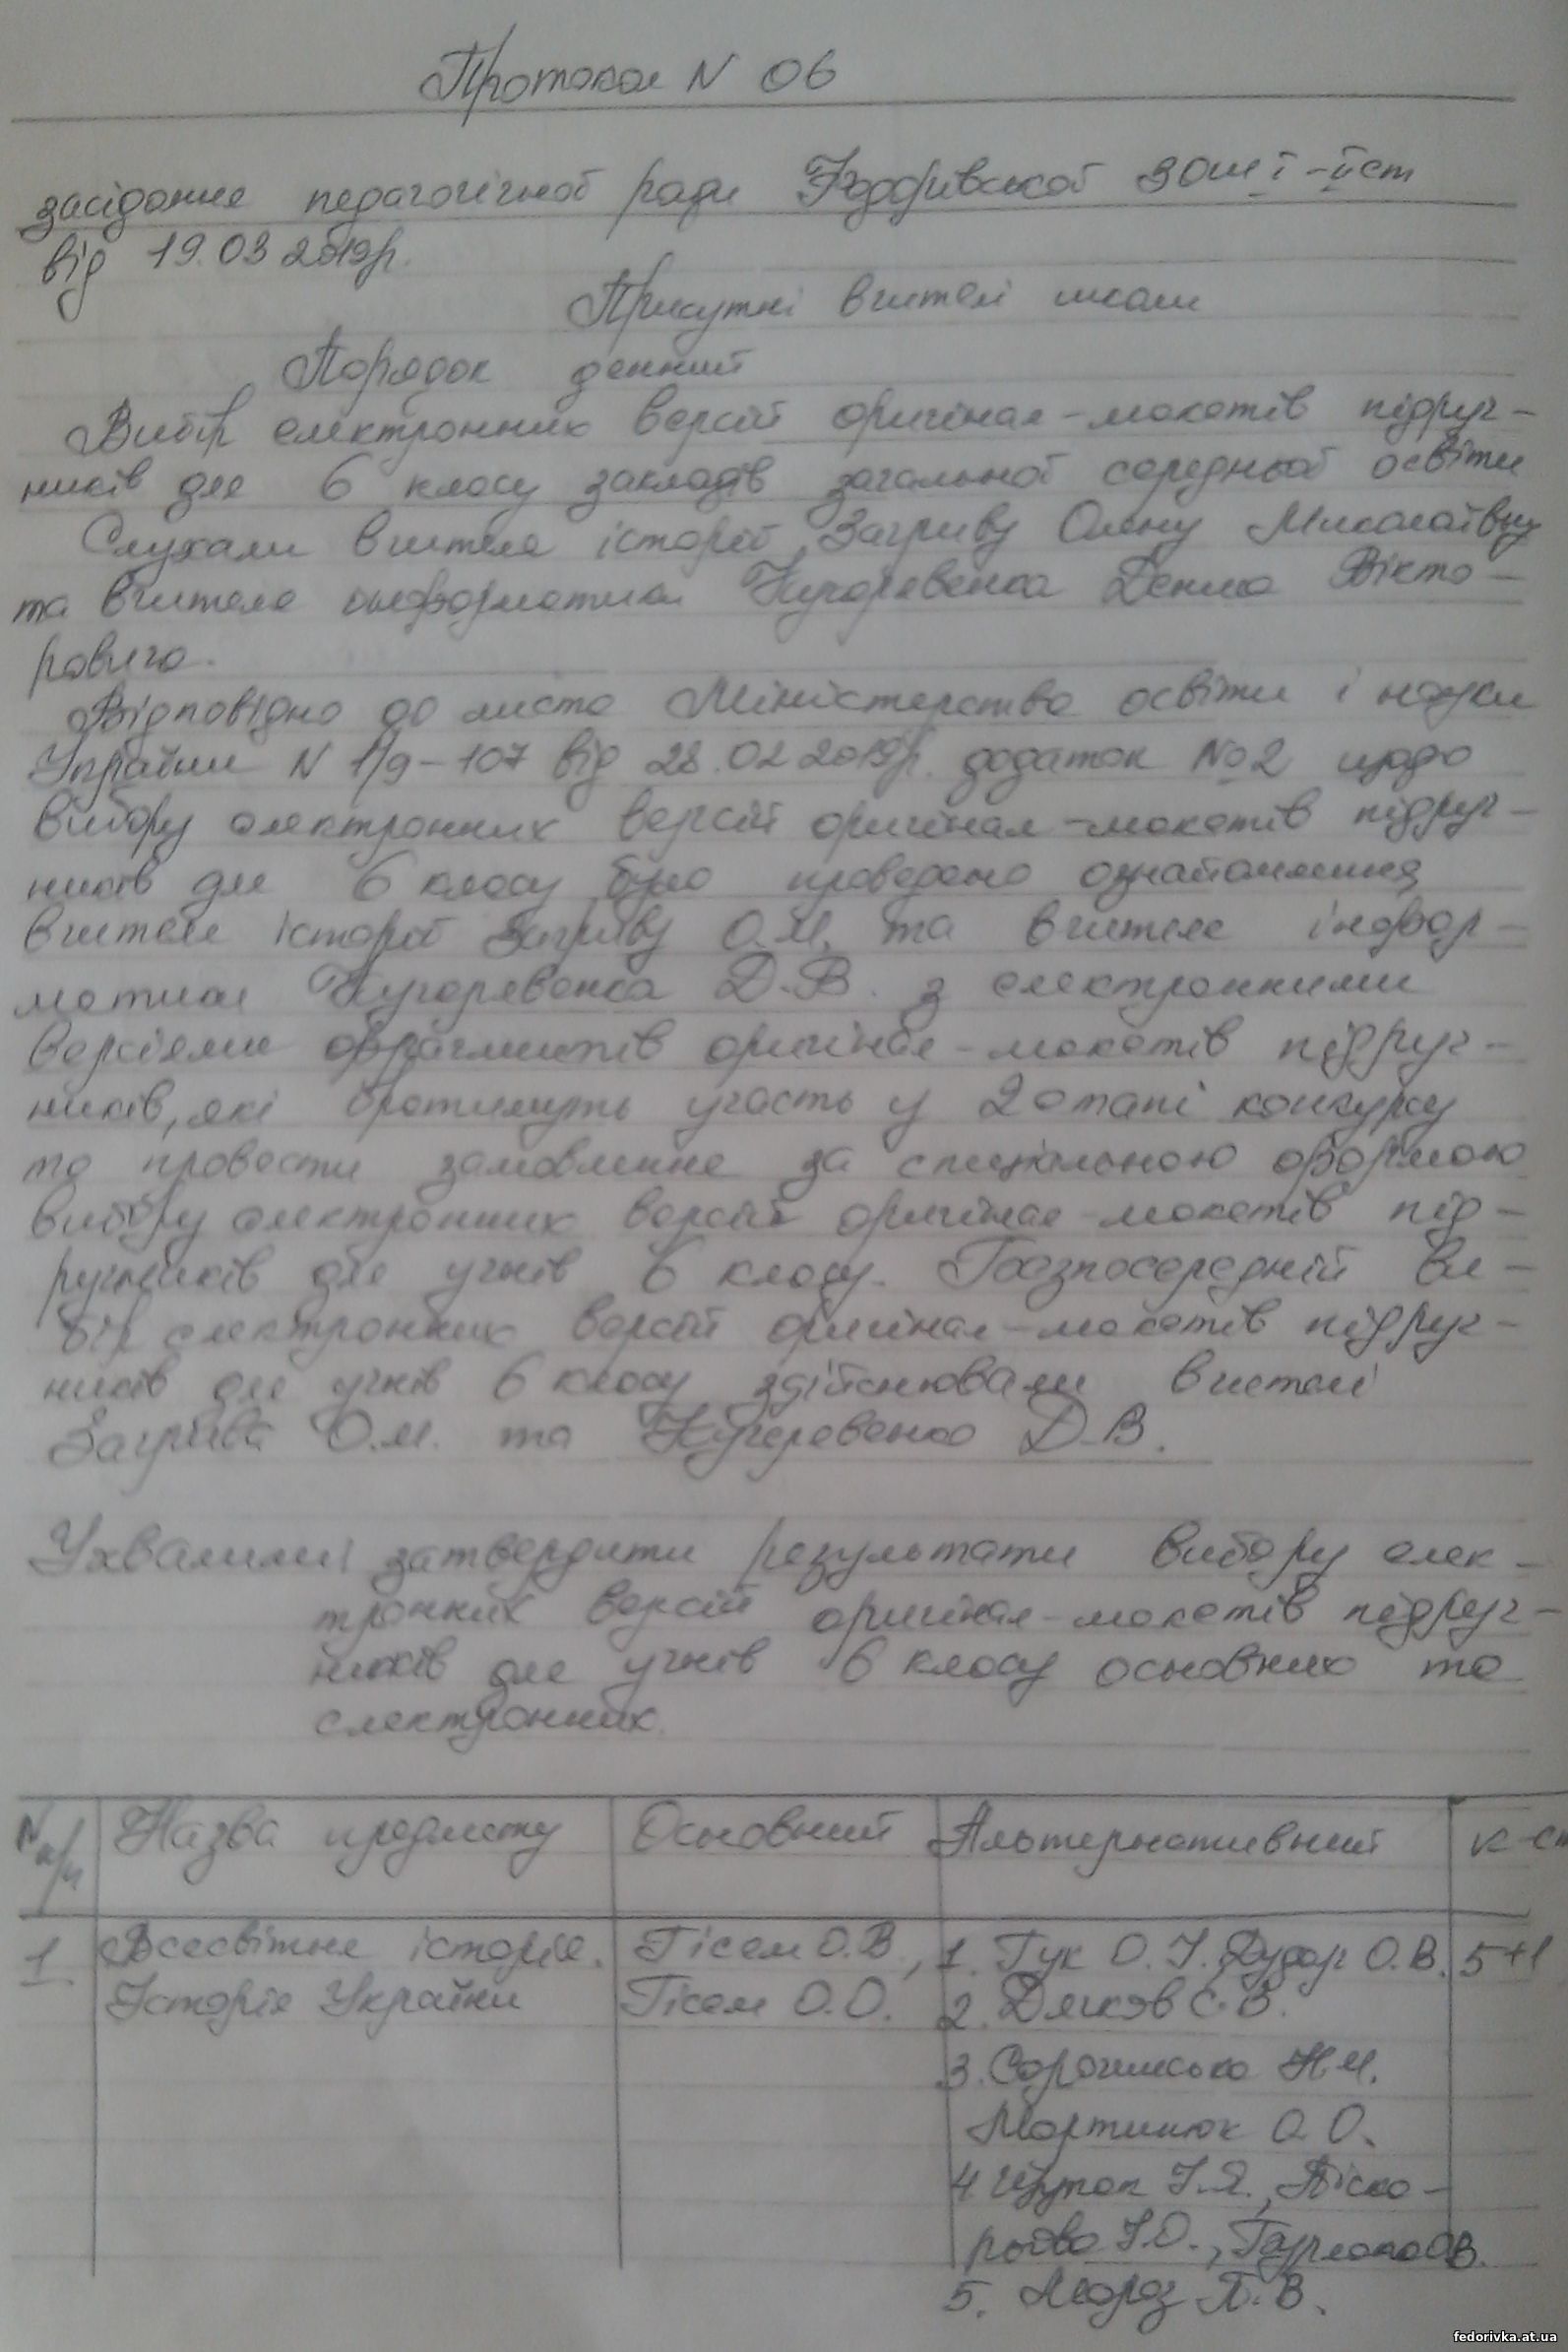 Протокол N 06
засідання педагогічної ради Федорівської ЗОШ І-ІІ ст
від 19.03 2019р.
Присутні вчителі школи
Порядок денний
Вибір електронних версій оригінал-макетів підруч-
ників для 6 класу закладів загальної середньої освіти
Слухали вчителя історії, Загриву Олену Миколаївну
та вчителя інформатики Кучеревенка Дениса Вікто-
ровича.
Відповідно до листа Міністерства освіти і науки
України N 1/9-107 від 28.02 2019р. додаток №2 щодо
вибору електронних версій оригінал-макетів підруч-
ників для 6 класу було проведено ознайомлення
вчителя історії Загриву О.М. та вчителя інфор-
матики Кучеревенка Д.В. з електронними
версіями фрагментів оригінал-макетів підруч-
ників, які братимуть участь у 2 етапі конкурсу
та провести замовлення за спеціальною формою
вибору електронних версій оригінал-макетів під-
ручників для учнів 6 класу. Безпосередній ви-
бір електронних версій оригінал-макетів підруч-
ників для учнів 6 класу здійснювали вчителі
Загрива О.М. та Кучеревенко Д.В.
Ухвалили: затвердити результати вибору елек-
тронних версій оригінал-макетів підруч-
ників для учнів 6 класу основних та
електронних.
N п/п Назва предмету Основний Альтернативний К-ст
1 Всесвітня історія. Гісем О.В., 1. Гук О. І. Дудар О.В. 5+1
Історія України Гісем О.О. 2. Дячков С.В.
3. Сорочинська Н.М.
Мартинюк О.О.
4 Щупак І.Я., Піско-
рьова І.О., Бурлака О.В.
5. Мороз П.В.
fedorivka.at.ua